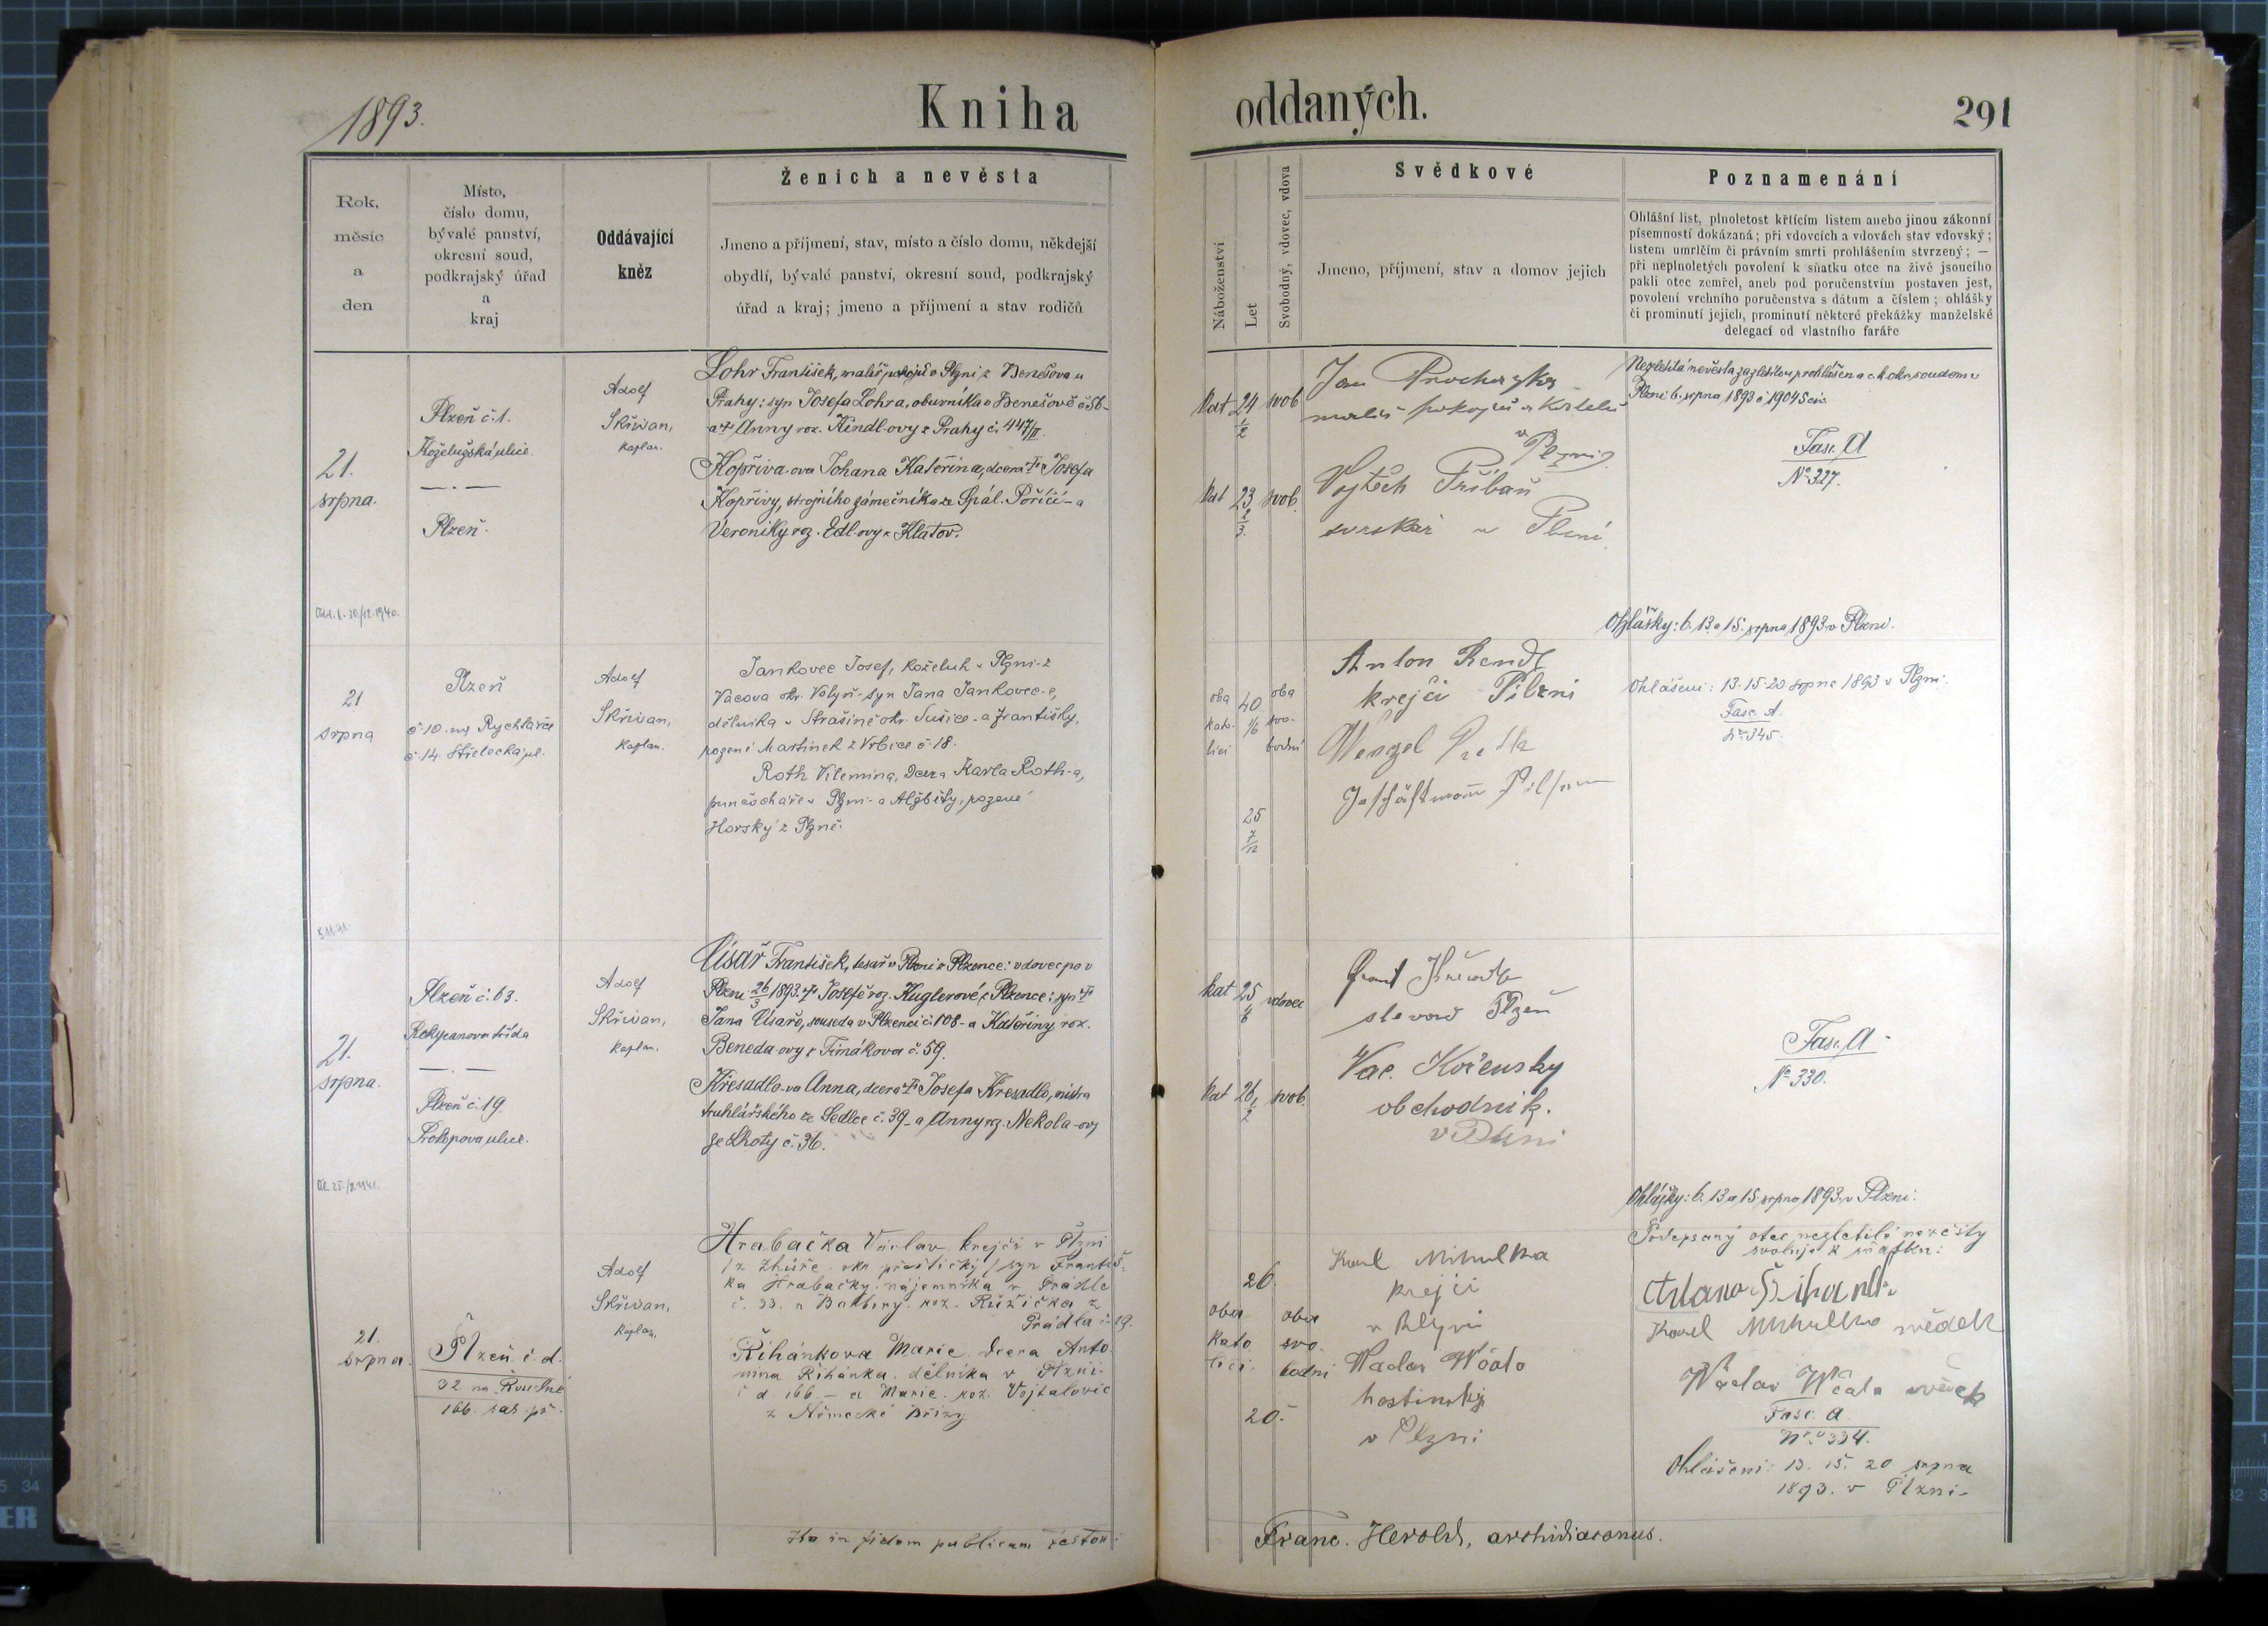 1893.
Kniha
oddaných.
291
Rok,
měsíc
a
den
Místo,
číslo domu,
bývalé panství,
okresní soud,
podkrajský úřad
a
kraj
Oddávající
kněz
Ženich a nevěsta
Jmeno a příjmení, stav, místo a číslo domu, někdejší
obydlí, bývalé panství, okresní soud, podkrajský
úřad a kraj; jmeno a příjmení a stav rodičů
Náboženství
Let
Svobodný, vdovec, vdova
Svědkové
Jmeno, příjmení, stav a domov jejich
Poznamenání
Ohlášní list, plnoletost křtícím listem anebo jinou zákonní
písemností dokázaná; při vdovcích a vdovách stav vdovský;
listem umrlčím či právním smrti prohlášením stvrzený; —
při neplnoletých povolení k sňatku otce na živě jsoucího
pakli otec zemřel, aneb pod poručenstvím postaven jest,
povolení vrchního poručenstva s dátum a číslem; ohlášky
či prominutí jejich, prominutí některé překážky manželské
delegací od vlastního faráře
21.
srpna.
Plzeň č. 1.
Koželužská ulice.
— . —
Plzeň.
Adolf
Skřivan,
kaplan.
Lohr František, malíř pokojů v Plzni z Benešova u
Prahy: syn Josefa Lohra, obuvníka v Benešově č. 56 -
a † Anny roz. Kindl-ovy z Prahy č. 447/II.
Kopřiva-ova Johana Kateřina, dcera † Josefa
Kopřivy, strojního zámečníka ze Spál. Poříčí - a
Veroniky roz. Edl-ovy z Klatov.
kat 24 1/2 svob
kat 23 2/3 svob.
Jan Procházka
malíř pokojů a kostelů
v Plzni
Vojtěch Přibáň
svrškař v Plzni
Nezletilá nevěsta za zletilou prohlášena c. k. okr. soudem v
Plzni 6. srpna 1893 č. 1904 Sciv.
Fasc. A
No 327.
Ohlášky: 6. 13. a 15. srpna 1893 v Plzni.
21
srpna
Plzeň
č. 10. na Rychtářce
č. 14. Střelecká ul.
Adolf
Skřivan,
kaplan.
Jankovec Josef, koželuh v Plzni - z
Vacova okr. Volyň - syn Jana Jankovec-e,
dělníka v Strašíně okr. Sušice - a Františky,
rozené Martínek z Vrbice č. 18.
Roth Vilemina, dcera Karla Roth-a,
punčocháře v Plzni - a Alžběty, rozené
Horský z Plzně.
oba
kato-
líci
40
1/6
oba
svo-
bodní
25
7/12
Anton Rendl
krejčí Pilzni
Wenzel
Ohlášení: 13. 15. 20 srpna 1893 v Plzni.
Fasc. A.
No 345.
21.
srpna.
Plzeň č. 63.
Rokycanova třída
— . —
Plzeň č. 19.
Prokopova ulice.
Adolf
Skřivan,
kaplan.
Císař František, tesař v Plzni z Plzence: vdovec po v
Plzni 26/3 1893. † Josefě roz. Kuglerové z Plzence: syn †
Jana Císaře, souseda v Plzenci č. 108 - a Kateřiny roz.
Beneda-ovy z Timákova č. 59.
Křesadlo-va Anna, dcera † Josefa Křesadlo, mistra
truhlářského ze Sedlce č. 39 - a Anny rz. Nekola-ovy
ze Lhoty č. 36.
kat 25 1/6 vdovec
kat 26 1/2 svob.
slevač Plzeň
Vac. Kořenský
obchodník.
v Plzni
Fasc. A
No 330.
Ohlášky: 6. 13 a 15. srpna 1893 v Plzni.
21.
srpna.
Plzeň č. d.
32 na Roudné
166. sas. př.
Adolf
Skřivan,
kaplan.
Hrabačka Václav krejčí v Plzni
/z Zhůře okr. přeštický/ syn Františ-
ka Hrabačky nájemníka v Prádle
č. 33. a Barbory. roz. Růžička z
Prádla č. 19.
Řihánkova Marie. dcera Anto
nína Řihánka. dělníka v Plzni
č. d. 166. - a Marie. roz. Vojtalovic
z Německé Břízy
26.
oba
kato
líci.
oba
svo.
bodni
20.
Karel Mikulka
krejčí
v Plzni
Waclav Wčala
hostinský
v Plzni
Podepsaný otec nezletilé nevěsty
svoluje k sňatku:
Karel Mikulka svědek
Wáclav Wčala svědek
Fasc. a.
No 334.
Ohlášení: 13. 15. 20 srpna
1893. v Plzni -
Ita in fidem publicam testor:
Franc. Herold, archidiaconus.